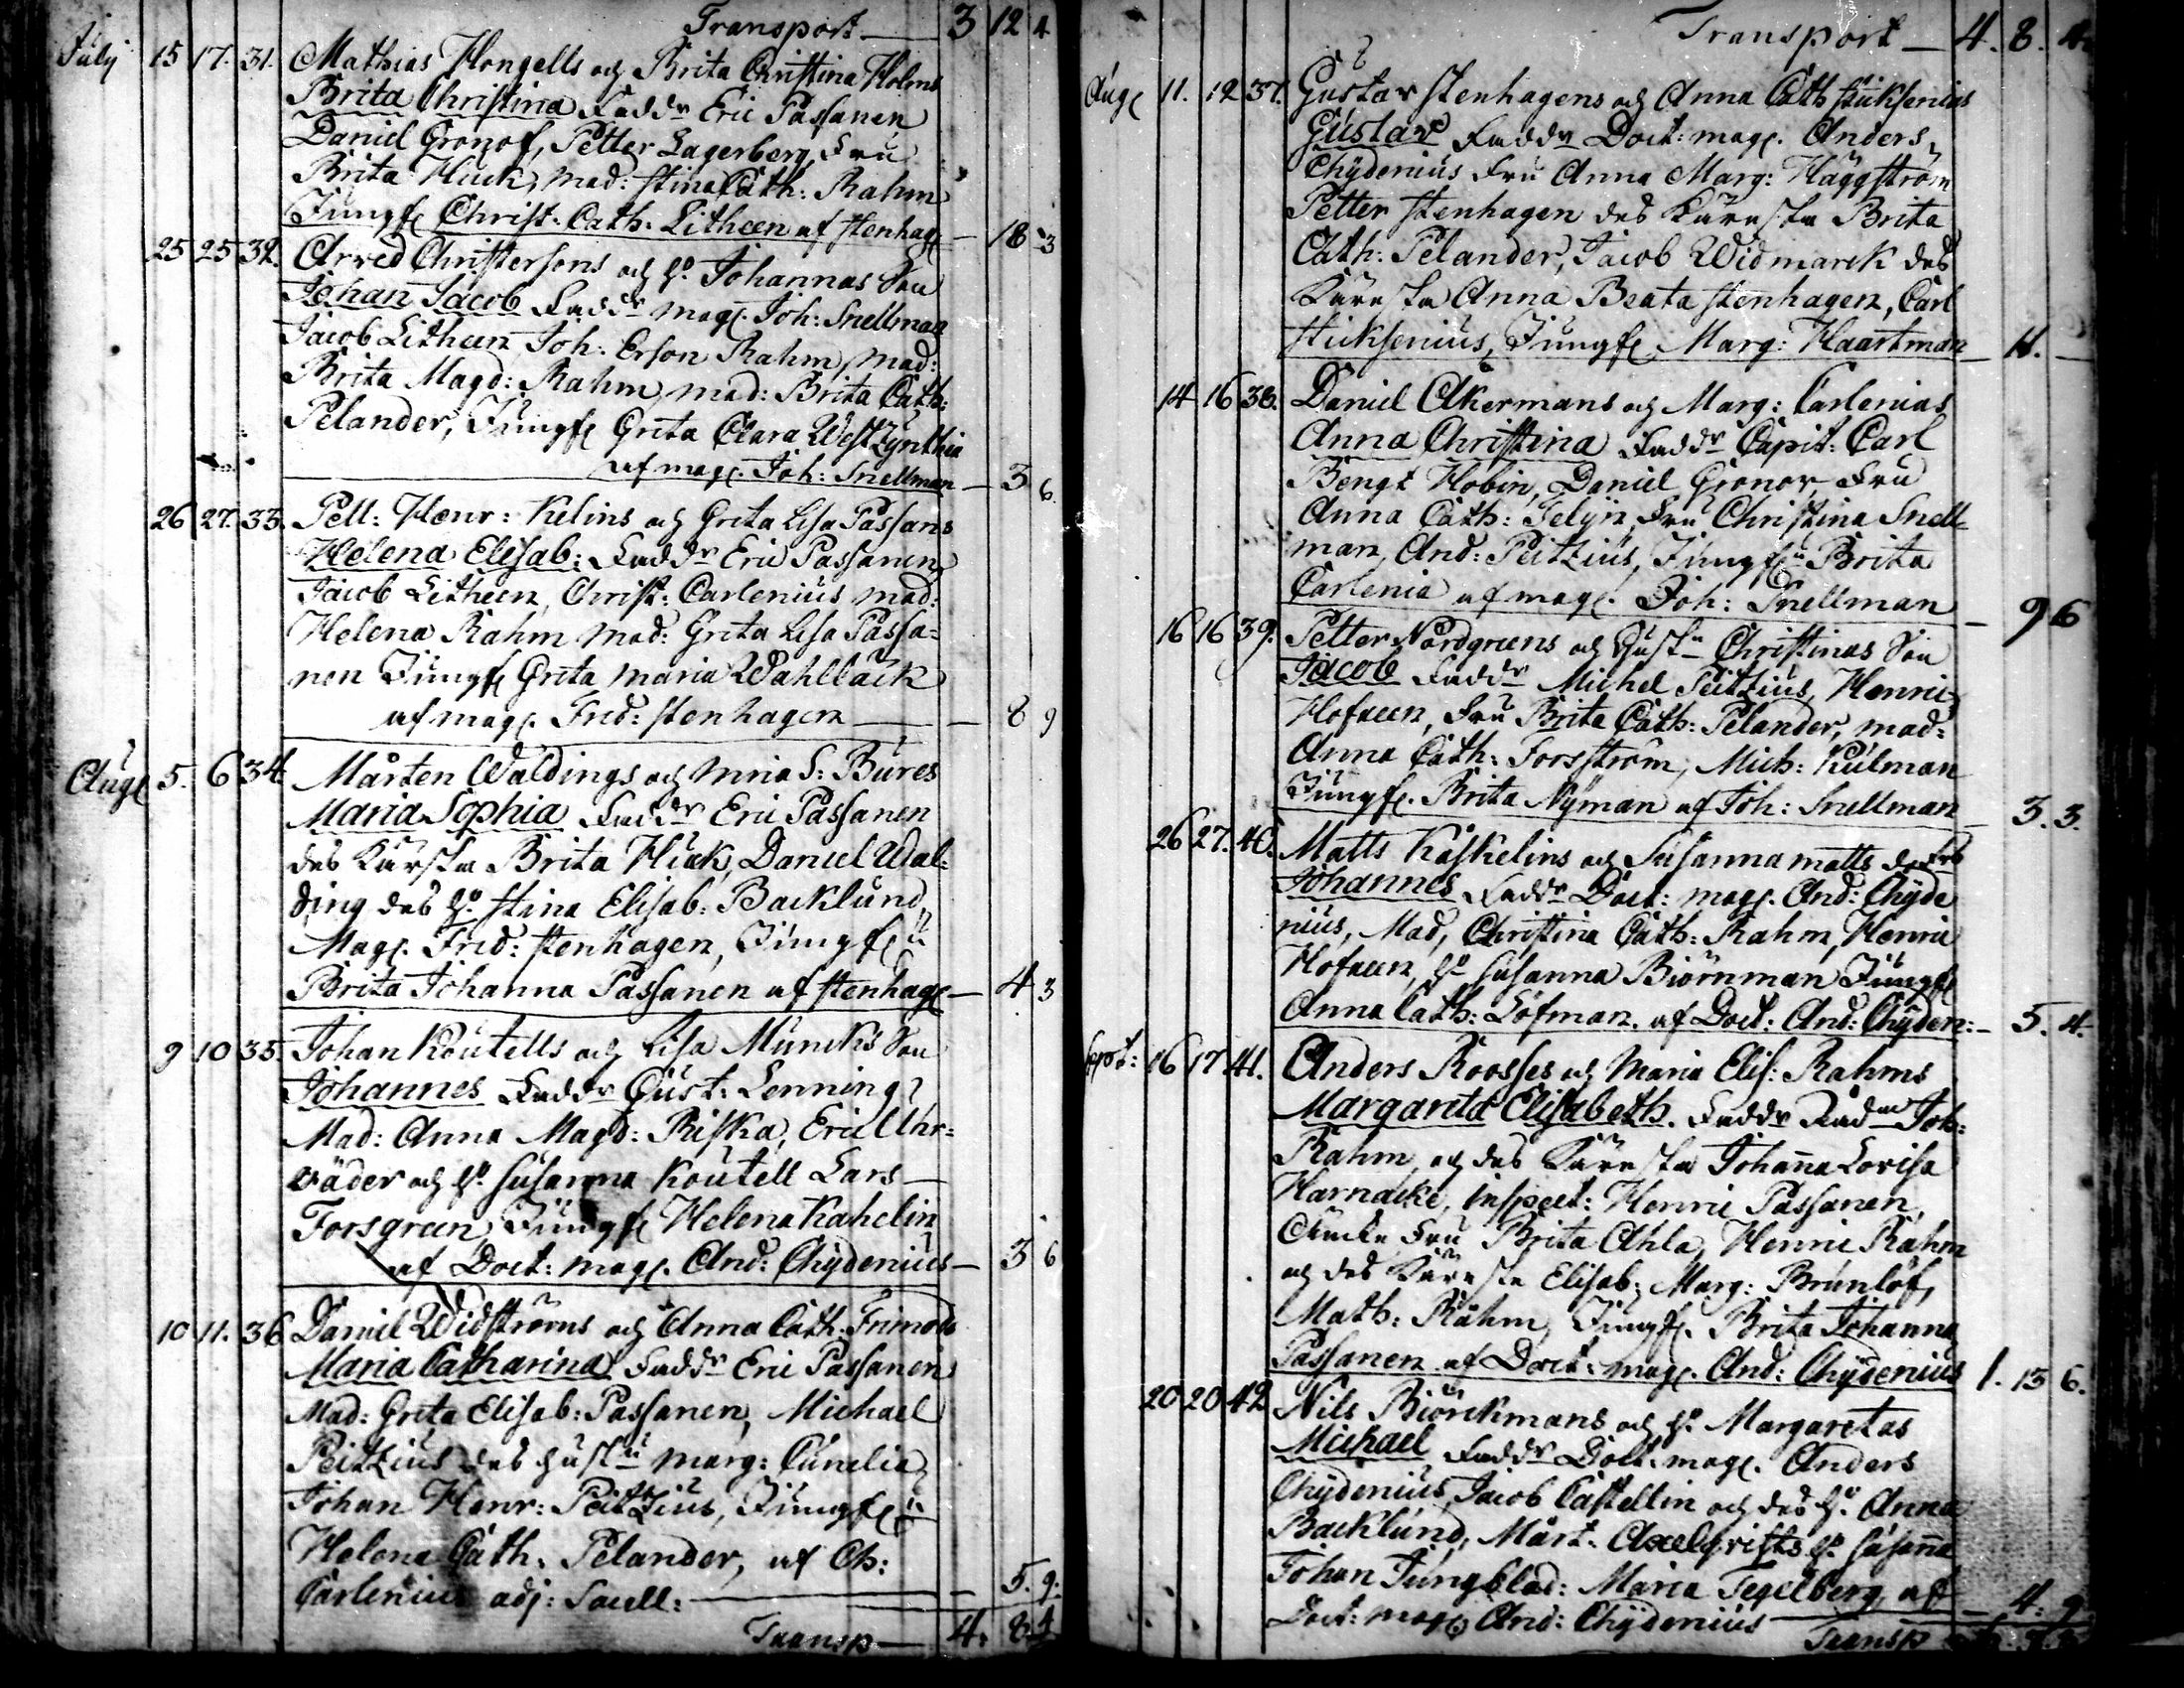 Transport — 3 12 4
July 15 17. 31. Mathias Hongells och Brita Christina Holms
Brita Christina Faddr Eric Passanen
Daniel Gronof, Petter Lagerberg, Fru
Brita Huck, mad: Stina Cath: Rahm
Jungf Christ: Cath: Litheen af Stenhag — 18 3
25 25 32. Arved Christersons och h. Johannas Son
Johan Jacob Faddr mag. Joh: Snellman
Jacob Litheen Joh: Erson Rahm, mad:
Brita Magd: Rahm, mad: Brita Cath:
Pelander, Jungf Greta Clara Westzynthia
af mag. Joh: Snellman — 3 6.
26 27. 33. Pett: Henr: Kelins och Greta Lisa Passans
Helena Elisab: Faddr Eric Passanen
Jacob Litheen, Christ: Carlenius mad:
Helena Rahm mad: Greta Lisa Passa=
nen Jungf Greta Maria Wahlbäck
af mag. Fred: Stenhagen — 8 9
Aug 5. 6 34 Mårten Waldings och Maria S: Bures
Maria Sophia Faddr Eric Passanen
des Kärsta Brita Huck, Daniel Wal=
ding des h. Stina Elisab: Backlund,
Mag. Fred: Stenhagen, Jungf
Brita Johanna Passanen af Stenhag — 4 3
9 10 35. Johan Koutells och Lisa Muncks Son
Johannes Faddr Gust: Lenning
Mad: Anna Magd: Riska, Eric Uhr=
väder och h. Susanna Koutell Lars
Forsgreen, Jungf Helena Kahelin
af Doct: mag. And: Chydenius — 3 6
10 11. 36 Daniel Widströms och Anna Cath: Frimods
Maria Catharina Faddr Eric Passanen
Mad: Greta Elisab: Passanen, Michael
Peitzius des hustu Marg:
Johan Henr: Peitzius, Jungf
Helena Cath. Pelander, af Ch:
Carlenius adj: Sacell: — 5. 9.
Transp — 4. 8. 4
Transport — 4. 8. 4.
Aug 11. 12 37. Gustav Stenhagens och Anna Cath Stuksenias
Gustav Faddr Doct: mag. Anders
Chydenius Fru Anna Marg: Häggström
Petter Stenhagen des Käresta Brita
Cath: Pelander, Jacob Widmarck des
Käresta Anna Beata Stenhagen, Carl
Stuksenius, Jungf Marg: Haartman — 11. —
14 16 38. Daniel Åkermans och Marg: Carlenias
Anna Christina Faddr Capit: Carl
Bengt Hobin, Daniel Gronov, Fru
Anna Cath: Fru Christina Snell=
man, And: Peitzius, Jungf Brita
Carlenia af mag. Joh: Snellman — 9 6
16 16 39. Petter Nordgreens och Hust Christinas Son
Jacob Faddr Michel Peitzius, Henric
Hofreen, Fru Brita Cath: Pelander, mad:
Anna Cath: Forsström, Mich: Kulman
Jungf. Brita Nyman af Joh: Snellman — 3. 3.
26 27. 40. Matts Kåskelins och Susanna Matts
Johannes Faddr Doct: mag. And: Chyde
nius, Mad, Christina Cath: Rahm, Henric
Hofreen, h. Susanna Biörnman Jungf
Anna Cath: Löfman. af Doct: And: Chyden: — 5. 4.
Sept: 16 17 41. Anders Roosses och Maria Elis: Rahms
Margareta Elisabeth. Faddr Rådm Joh:
Rahm, och des Käresta Johanna Lovisa
Harnacke, Inspect: Henric Passanen,
Fru Brita Ahla, Henric Rahm
och des Käresta Elisab: Marg: Brunlöf,
Math: Rahm, Jungf. Brita Johanna
Passanen af Doct: mag. And: Chydenius 1. 13 6.
20 20 42 Nils Biörckmans och h. Margaretas
Michael Faddr Doct: mag. Anders
Chydenius, Jacob Castellin och des h. Anna
Backlund, Mårt: Axelqvists h. Susanna
Johan Jungblad: Maria Tegelberg af
Doct: mag. And: Chydenius — 4. 9
Transp